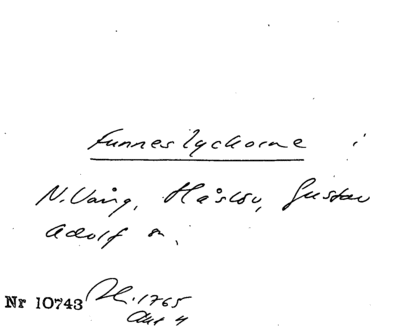 Funneslyckorne i
N. Vång, Håslöv, Gustav
Adolf m.
Nr 10743 H. 1765
Akt 4